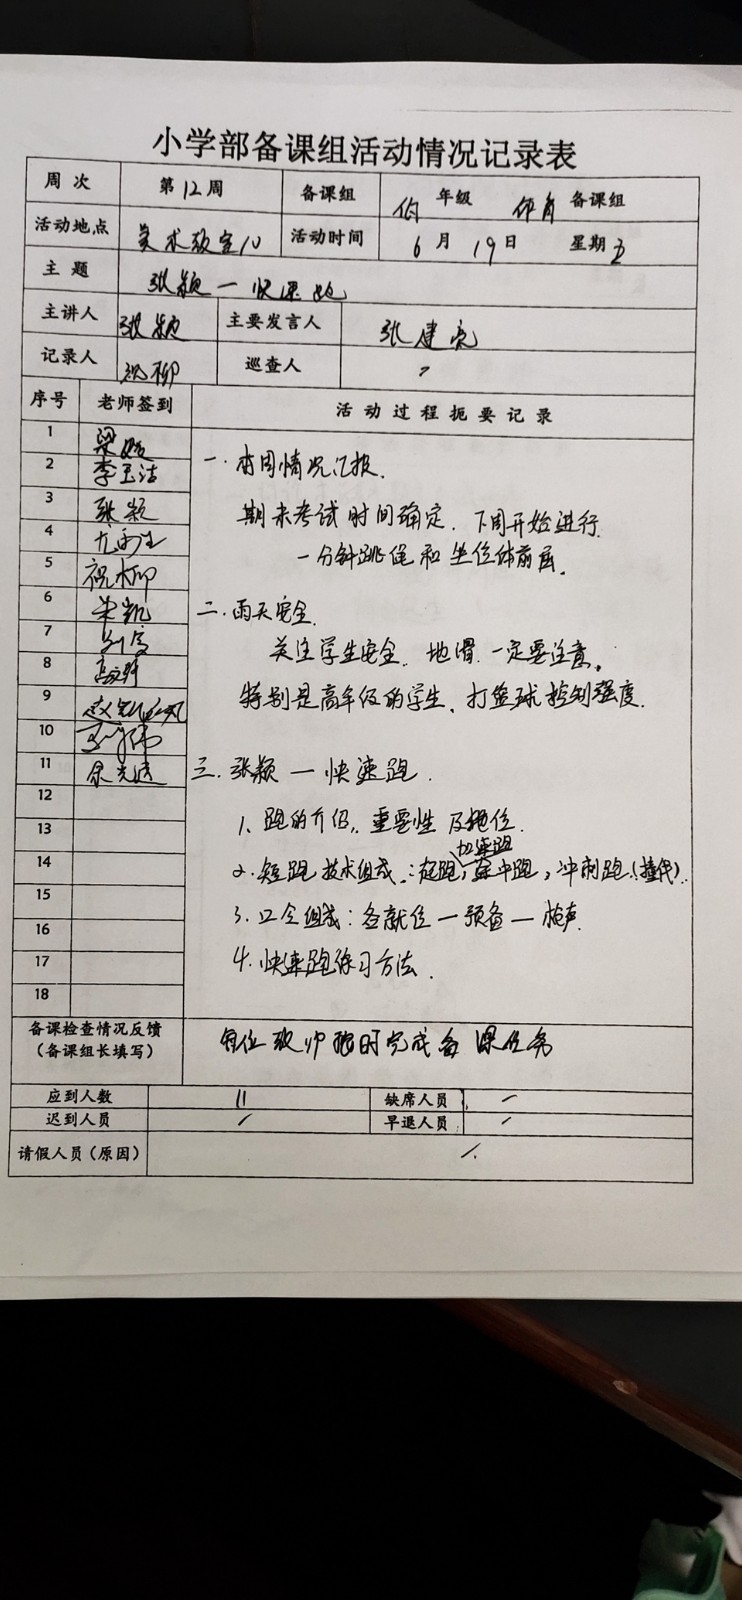 小学部备课组活动情况记录表
周次 第12周 备课组 年级 体育 备课组
活动地点 美术教室10 活动时间 6月19日 星期五
主题 张颖一快速跑
主讲人 张颖 主要发言人 张建亮
记录人 祝柳 巡查人
序号 老师签到 活动过程扼要记录
1 梁媛
2 李玉洁
3 张颖
4
5 祝柳
6 朱凯
7
8
9
10
11
12
13
14
15
16
17
18
一.本周情况汇报.
期末考试时间确定.下周开始进行
一分钟跳绳和坐位体前屈.
二.雨天安全.
关注学生安全.地滑.一定要注意。
特别是高年级的学生、打篮球控制强度.
三.张颖一快速跑.
1、跑的介绍,重要性及地位.
加速跑
2.短跑技术组成:起跑,途中跑,冲刺跑(撞线).
3.口令组成:各就位一预备一枪声
4.快速跑练习方法.
备课检查情况反馈
(备课组长填写) 每位教师按时完成备课任务
应到人数 11 缺席人员
迟到人员 早退人员
请假人员(原因)